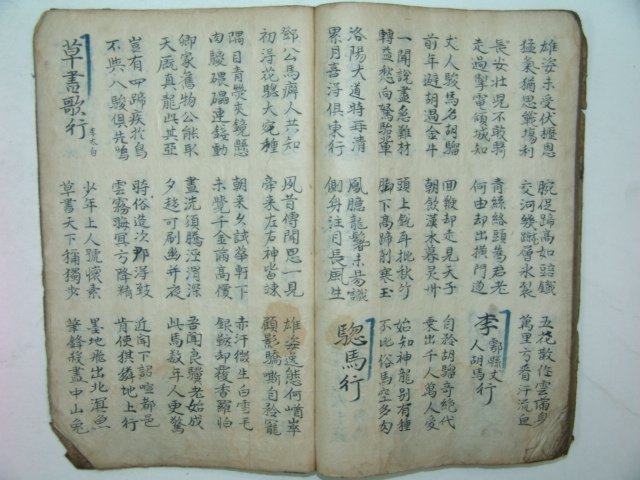 雄姿未受伏櫪恩
猛氣猶思戰場利
腕促蹄高如踣鐵
交河幾蹴層氷裂
五花散作雲滿身
萬里方看汗流血
長安壯兒不敢騎
走過掣電傾城知
青絲絡頭爲君老
何由却出橫門道
李鄠縣丈人胡馬行
丈人駿馬名胡騮
前年避胡過金牛
回鞭却走見天子
朝飮漢水暮灵州
自矜胡騮奇絶代
乘出千人萬人愛
一聞說盡急難材
轉益愁向駑駘輩
頭上銳耳批秋竹
脚下高蹄削寒玉
始知神龍別有種
不比俗馬空多肉
洛陽大道時再淸
累月喜得俱東行
鳳臆龍鬐未易識
側身注目長風生
驄馬行
鄧公馬癖人共知
初得花驄大宛種
夙昔傳聞思一見
牽來左右神皆竦
雄姿逸態何崷崒
顧影驕嘶自矜寵
隅目靑熒夾鏡懸
肉騣碨礧連錢動
朝來久試華軒下
未覺千金滿高價
赤汗微生白雪毛
銀鞍却覆香羅帕
卿家舊物公能取
天厩真龍此其亞
晝洗須騰涇渭深
夕趍可刷幽幷夜
吾聞良驥老始成
此馬數年人更驚
豈有四蹄疾於鳥
不與八駿俱先鳴
時俗造次那得致
雲霧晦冥方降精
近聞下詔喧都邑
肯使騏驎地上行
草書歌行 李太白
少年上人號懷素
草書天下稱獨步
墨池飛出北溟魚
筆鋒殺盡中山兎